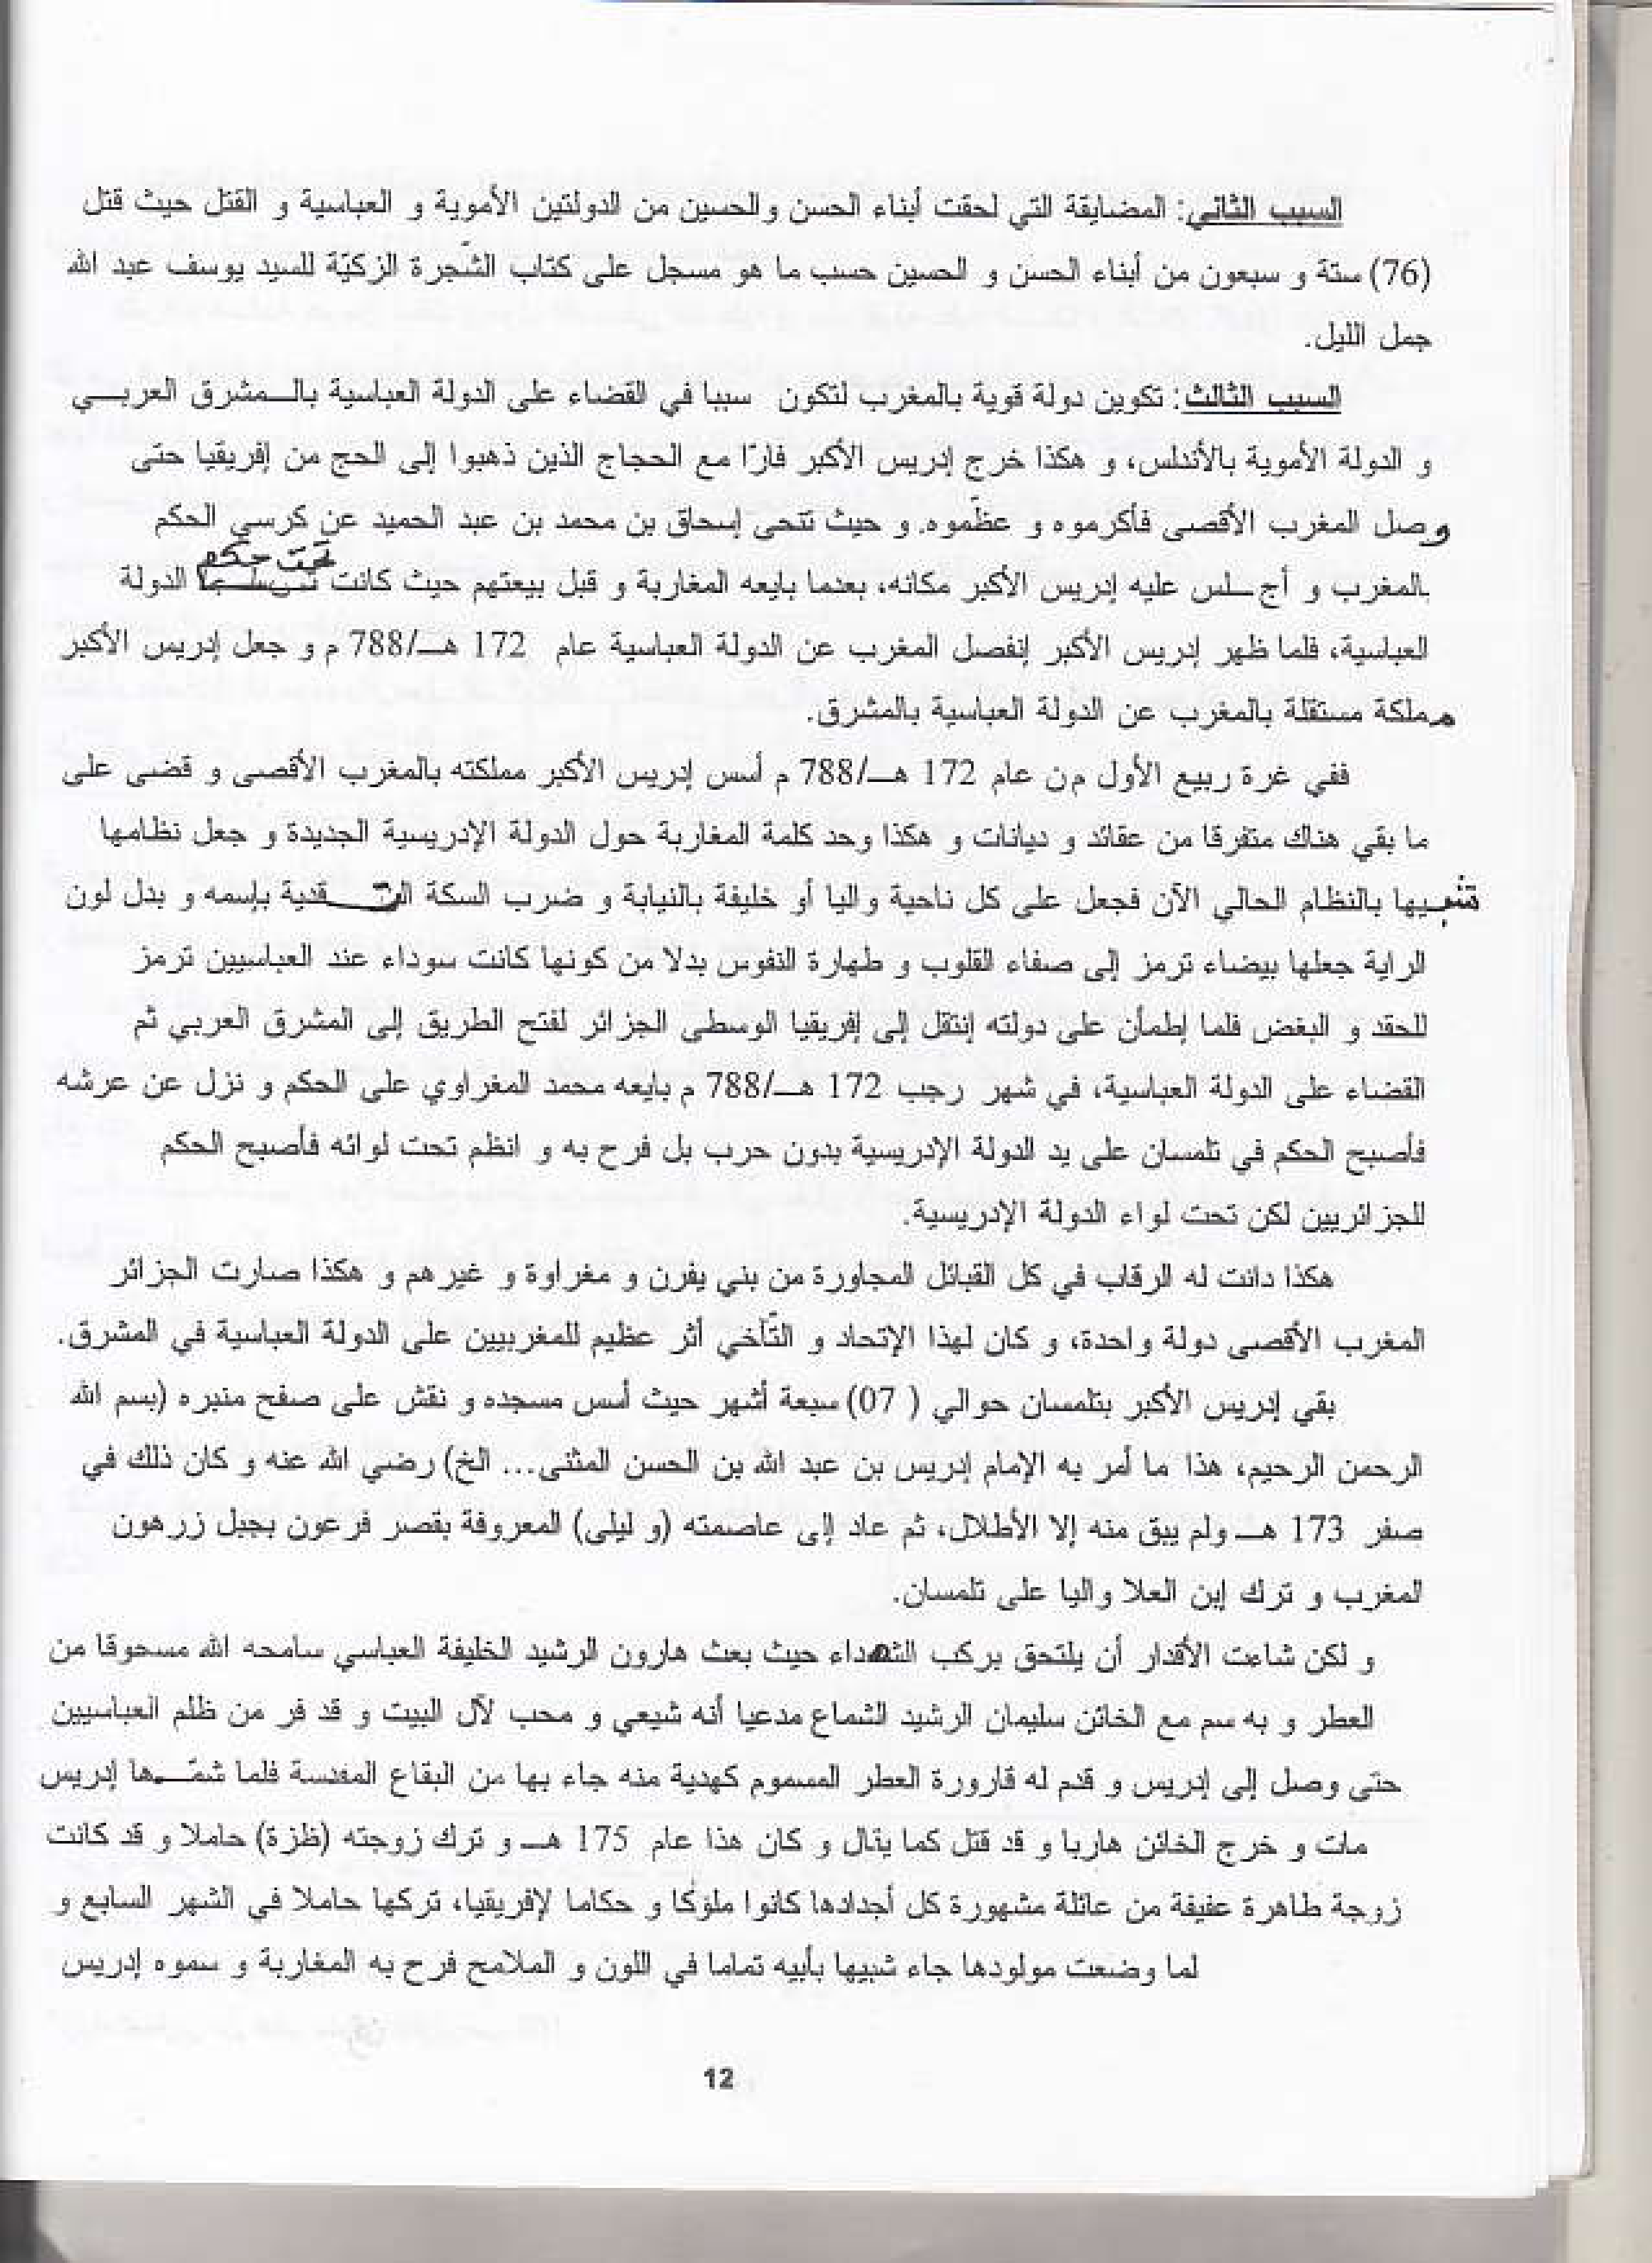 السبب الثاني: المضايقة التي لحقت أبناء الحسن والحسين من الدولتين الأموية و العباسية و القتل حيث قتل
(76) ستة و سبعون من أبناء الحسن و الحسين حسب ما هو مسجل على كتاب الشّجرة الزكيّة للسيد يوسف عبد الله
جمل الليل.
السبب الثالث: تكوين دولة قوية بالمغرب لتكون سببا في القضاء على الدولة العباسية بالـــمشرق العربـــي
و الدولة الأموية بالأندلس، و هكذا خرج إدريس الأكبر فارّا مع الحجاج الذين ذهبوا إلى الحج من إفريقيا حتى
وصل المغرب الأقصى فأكرموه و عظّموه. و حيث تنحى إسحاق بن محمد بن عبد الحميد عن كرسي الحكم
بالمغرب و أجـــلس عليه إدريس الأكبر مكانه، بعدما بايعه المغاربة و قبل بيعتهم حيث كانت تحت حكم الدولة
العباسية، فلما ظهر إدريس الأكبر إنفصل المغرب عن الدولة العباسية عام 172 هــ/788 م و جعل إدريس الأكبر
مملكة مستقلة بالمغرب عن الدولة العباسية بالمشرق.
ففي غرة ربيع الأول من عام 172 هــ/788 م أسس إدريس الأكبر مملكته بالمغرب الأقصى و قضى على
ما بقي هناك متفرقا من عقائد و ديانات و هكذا وحد كلمة المغاربة حول الدولة الإدريسية الجديدة و جعل نظامها
شبيها بالنظام الحالي الآن فجعل على كل ناحية واليا أو خليفة بالنيابة و ضرب السكة النـــقدية بإسمه و بدل لون
الراية جعلها بيضاء ترمز إلى صفاء القلوب و طهارة النفوس بدلا من كونها كانت سوداء عند العباسيين ترمز
للحقد و البغض فلما إطمأن على دولته إنتقل إلى إفريقيا الوسطى الجزائر لفتح الطريق إلى المشرق العربي ثم
القضاء على الدولة العباسية، في شهر رجب 172 هــ/788 م بايعه محمد المغراوي على الحكم و نزل عن عرشه
فأصبح الحكم في تلمسان على يد الدولة الإدريسية بدون حرب بل فرح به و انظم تحت لوائه فأصبح الحكم
للجزائريين لكن تحت لواء الدولة الإدريسية.
هكذا دانت له الرقاب في كل القبائل المجاورة من بني يفرن و مغراوة و غيرهم و هكذا صارت الجزائر
المغرب الأقصى دولة واحدة، و كان لهذا الإتحاد و التّآخي أثر عظيم للمغربيين على الدولة العباسية في المشرق.
بقي إدريس الأكبر بتلمسان حوالي ( 07) سبعة أشهر حيث أسس مسجده و نقش على صفح منبره (بسم الله
الرحمن الرحيم، هذا ما أمر به الإمام إدريس بن عبد الله بن الحسن المثنى... الخ) رضي الله عنه و كان ذلك في
صفر 173 هــ ولم يبق منه إلا الأطلال، ثم عاد إلى عاصمته (و ليلى) المعروفة بقصر فرعون بجبل زرهون
المغرب و ترك إبن العلا واليا على تلمسان.
و لكن شاءت الأقدار أن يلتحق بركب الشهداء حيث بعث هارون الرشيد الخليفة العباسي سامحه الله مسحوقا من
العطر و به سم مع الخائن سليمان الرشيد الشماع مدعيا أنه شيعي و محب لآل البيت و قد فر من ظلم العباسيين
حتى وصل إلى إدريس و قدم له قارورة العطر المسموم كهدية منه جاء بها من البقاع المقدسة فلما شمّـــها إدريس
مات و خرج الخائن هاربا و قد قتل كما يقال و كان هذا عام 175 هــ و ترك زوجته (ظزة) حاملا و قد كانت
زوجة طاهرة عفيفة من عائلة مشهورة كل أجدادها كانوا ملوكا و حكاما لإفريقيا، تركها حاملا في الشهر السابع و
لما وضعت مولودها جاء شبيها بأبيه تماما في اللون و الملامح فرح به المغاربة و سموه إدريس
12